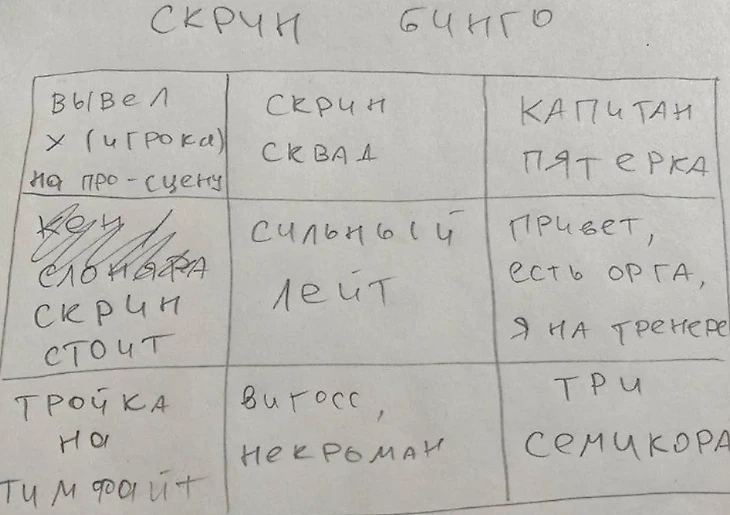 СКРИН БИНГО
ВЫВЕЛ
Х (игрока)
на про-сцену
СКРИН
СКВАД
КАПИТАН
ПЯТЕРКА
СКРИН
СТОИТ
СИЛЬНЫЙ
ЛЕЙТ
ПРИВЕТ,
ЕСТЬ ОРГА,
Я НА ТРЕНЕРЕ
ТРОЙКА
НА
ТИМФАЙТ
ВИГОСС,
НЕКРОМАН
ТРИ
СЕМИКОРА